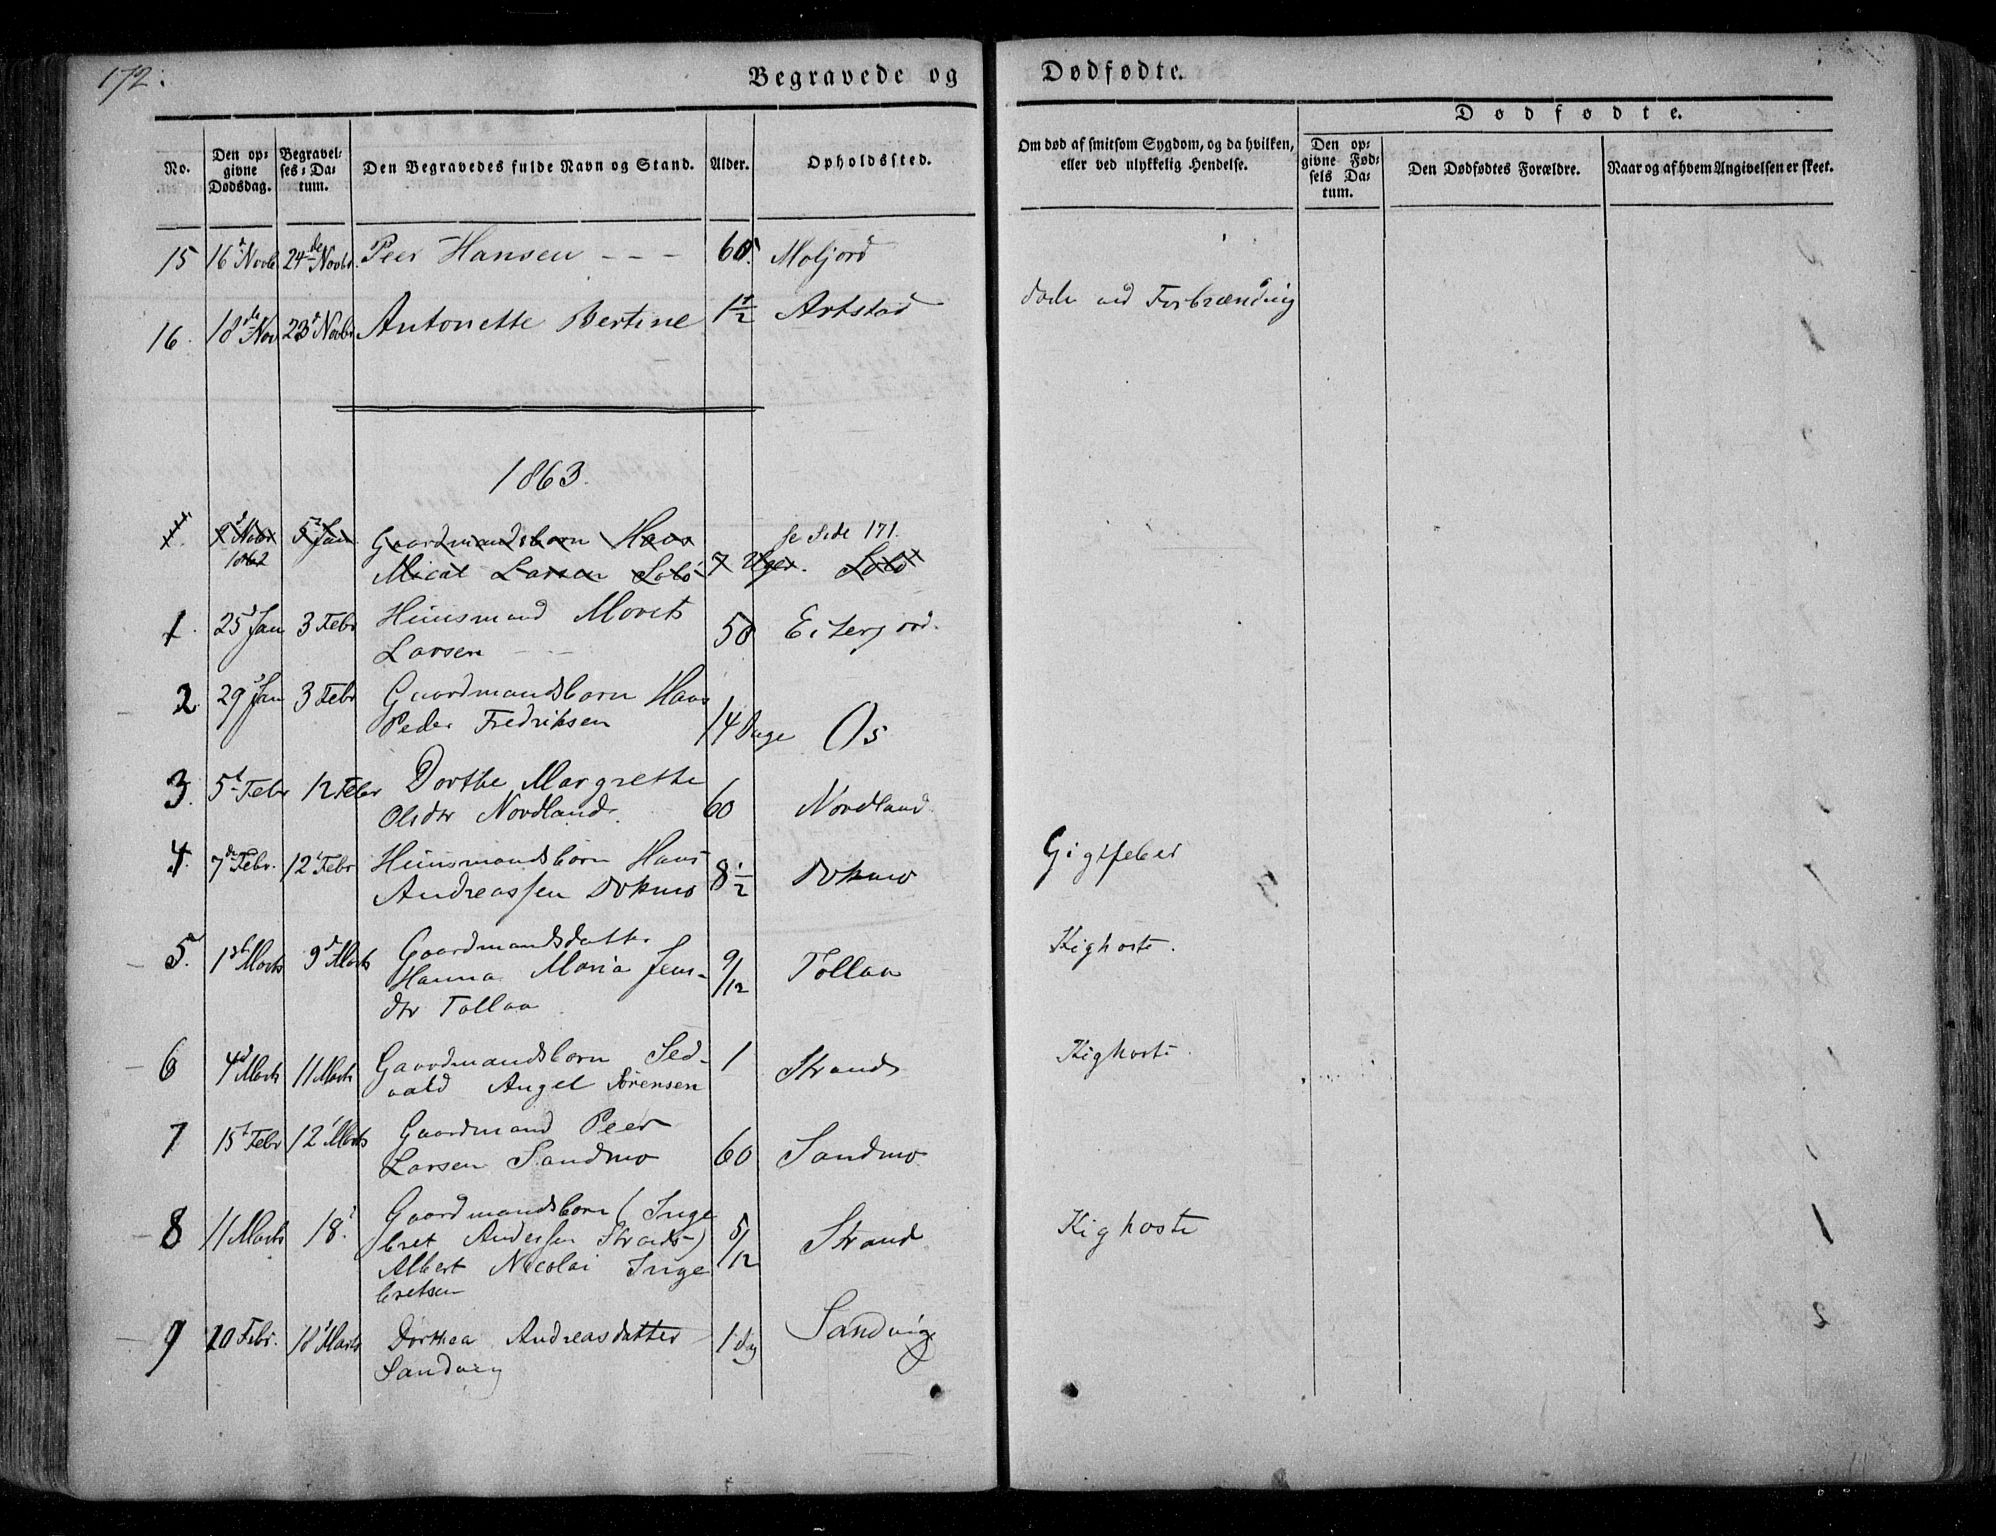 172.
Begravede og Dødfødte.
No. Den opgivne Dødsdag. Begravelses-Datum. Den Begravedes fulde Navn og Stand. Alder. Opholdssted. Om død af smitsom Sygdom, og da hvilken, eller ved ulykkelig Hendelse. Dødfødte. Den opgivne Fødsels Datum. Den Dødfødtes Forældre. Naar og af hvem Angivelsen er skeet.
15 16 Novb 24de Novbr. Peer Hansen - - - 60. Moljord
16. 18de Nov 23d Novbr Antonette Bertine 1 1/2 Artstad døde ved Forbrænding
1863.
1. 2d Novbr 1862 5t Jan Gaardmandsbarn Hans se Side 171.
Mical Larsen Solø 7 Uger. Solø
1. 25d Jan 3 Febr Huusmand Morits
Larsen 50 Eiterjord.
2 29d Jan 3 Febr Gaardmandsbarn Hans
Peder Fredriksen 14 Dage Os
3. 5t Febr 12 Febr Dorthe Margrethe
Olsdtr Nordland. 60 Nordland.
4. 7de Febr. 12t Febr Huusmandsbarn Hans
Andreassen Dokmo 8 1/2 Dokmo Gigtfeber
5. 1st Marts 9d Marts Gaardmandsdatter
Hanna Maria Jens-
dtr Tollaa 9/12 Tollaa Kighoste.
6 4d Marts 11 Marts Gaardmandsbarn Sed-
vald Angel Sørensen 1 Strand Kighoste.
7 15t Febr 12t Marts Gaardmand Peer
Larsen Sandmo 60 Sandmo
8 11 Marts 18. Gaardmandsbarn (Inge
bret Anderssen Strands)
Albert Nicolai Inge
bretsen 5/12 Strand Kighoste
9 20 Febr. 18d Marts Dorthea Andreasdatter
Sandvig 1 Dag Sandvig